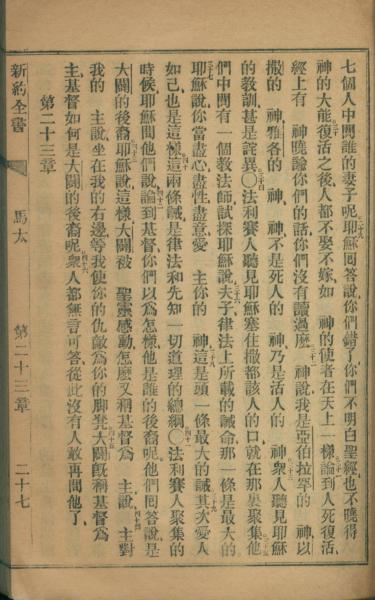 七個人中間誰的妻子呢耶穌回答說你們錯了你們不明白聖經也不曉得
神的大能復活之後人都不娶不嫁如 神的使者在天上一樣論到人死復活
經上有 神曉諭你們的話你們沒有讀過麽 神說我是亞伯拉罕的 神以
撒的 神雅各的 神 神不是死人的 神乃是活人的 神衆人聽見耶穌
的教訓甚是詫異〇法利賽人聽見耶穌塞住撒都該人的口就在那裏聚集他
們中間有一個教法師試探耶穌說夫子律法上所載的誡命那一條是最大的
耶穌說你當盡心盡性盡意愛 主你的 神這是頭一條最大的誡其次愛人
如己也是這樣這兩條誡是律法和先知一切道理的總綱〇法利賽人聚集的
時候耶穌問他們說論到基督你們以爲怎樣他是誰的後裔呢他們回答說是
大闢的後裔耶穌說這樣大闢被 聖靈感動怎麽又稱基督爲 主說 主對
我的 主說坐在我的右邊等我使你的仇敵爲你的脚凳大闢既稱基督爲
主基督如何是大闢的後裔呢衆人都無言可答從此沒有人敢再問他了
第二十三章
新約全書
馬太
第二十三章
二十七